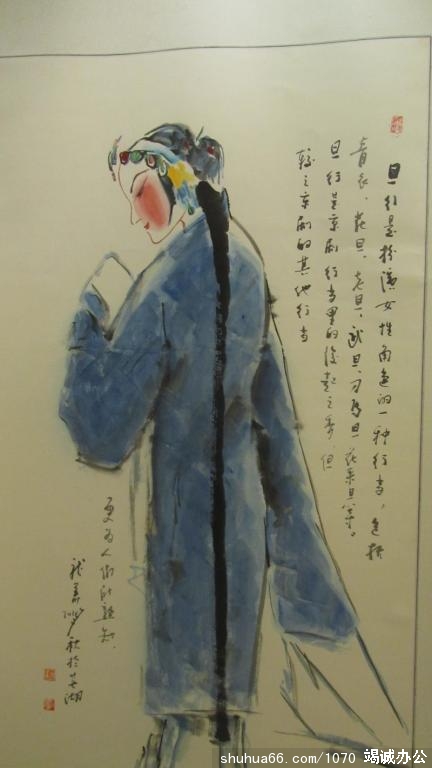 旦行是扮演女性角色的一种行当，包括
青衣、花旦、老旦、武旦、刀马旦、花衫旦等。
旦行是京剧行当里的后起之秀，但
较之京剧的其他行当
更为人们所熟知.
秋於芜湖
shuhua66.com/1070 竭诚办公